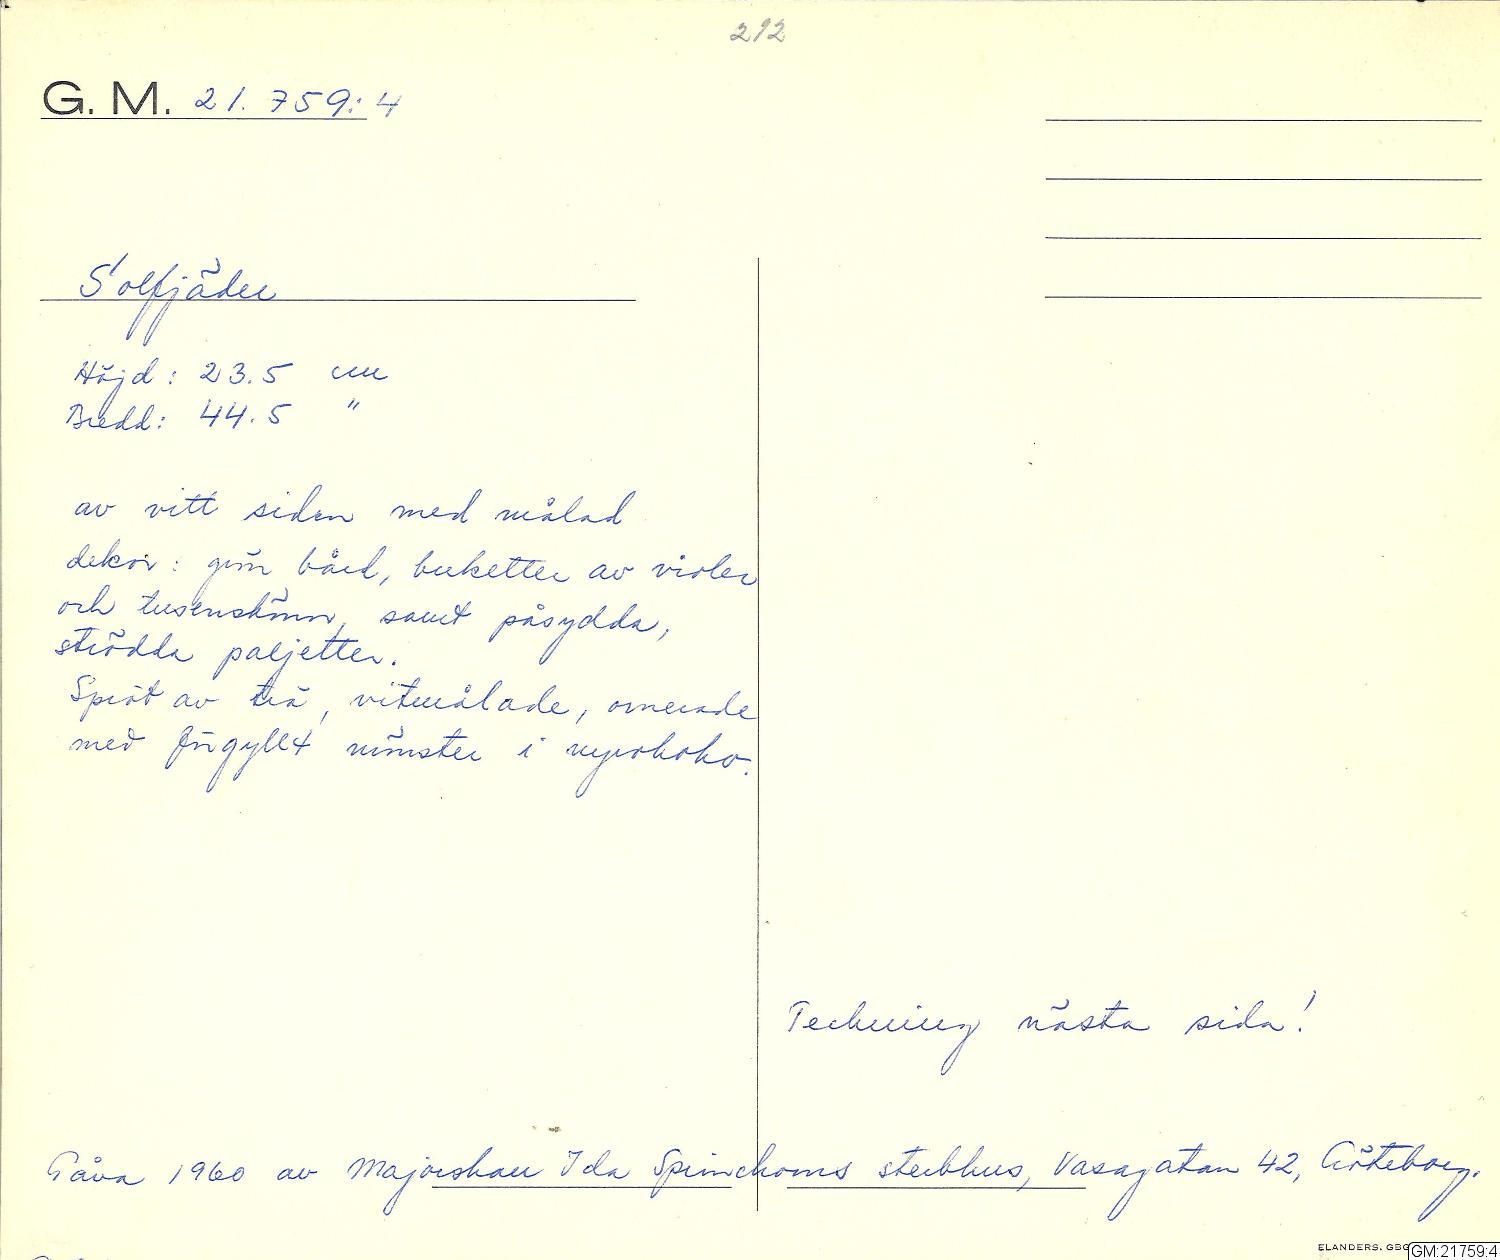 212
G. M. 21.759:4
Solfjäder
Höjd: 23.5 cm
Bredd: 44.5 "
av vitt siden med målad
dekor: grön bård, buketter av violer
och tusenskönor, samt påsydda,
strödda paljetter.
Spröt av trä, vitmålade, ornerade
med förgyllt mönster i nyrokoko.
Teckning nästa sida!
Gåva 1960 av Majorskan Ida sterbhus, Vasagatan 42, Göteborg.
ELANDERS. GBG
GM:21759:4